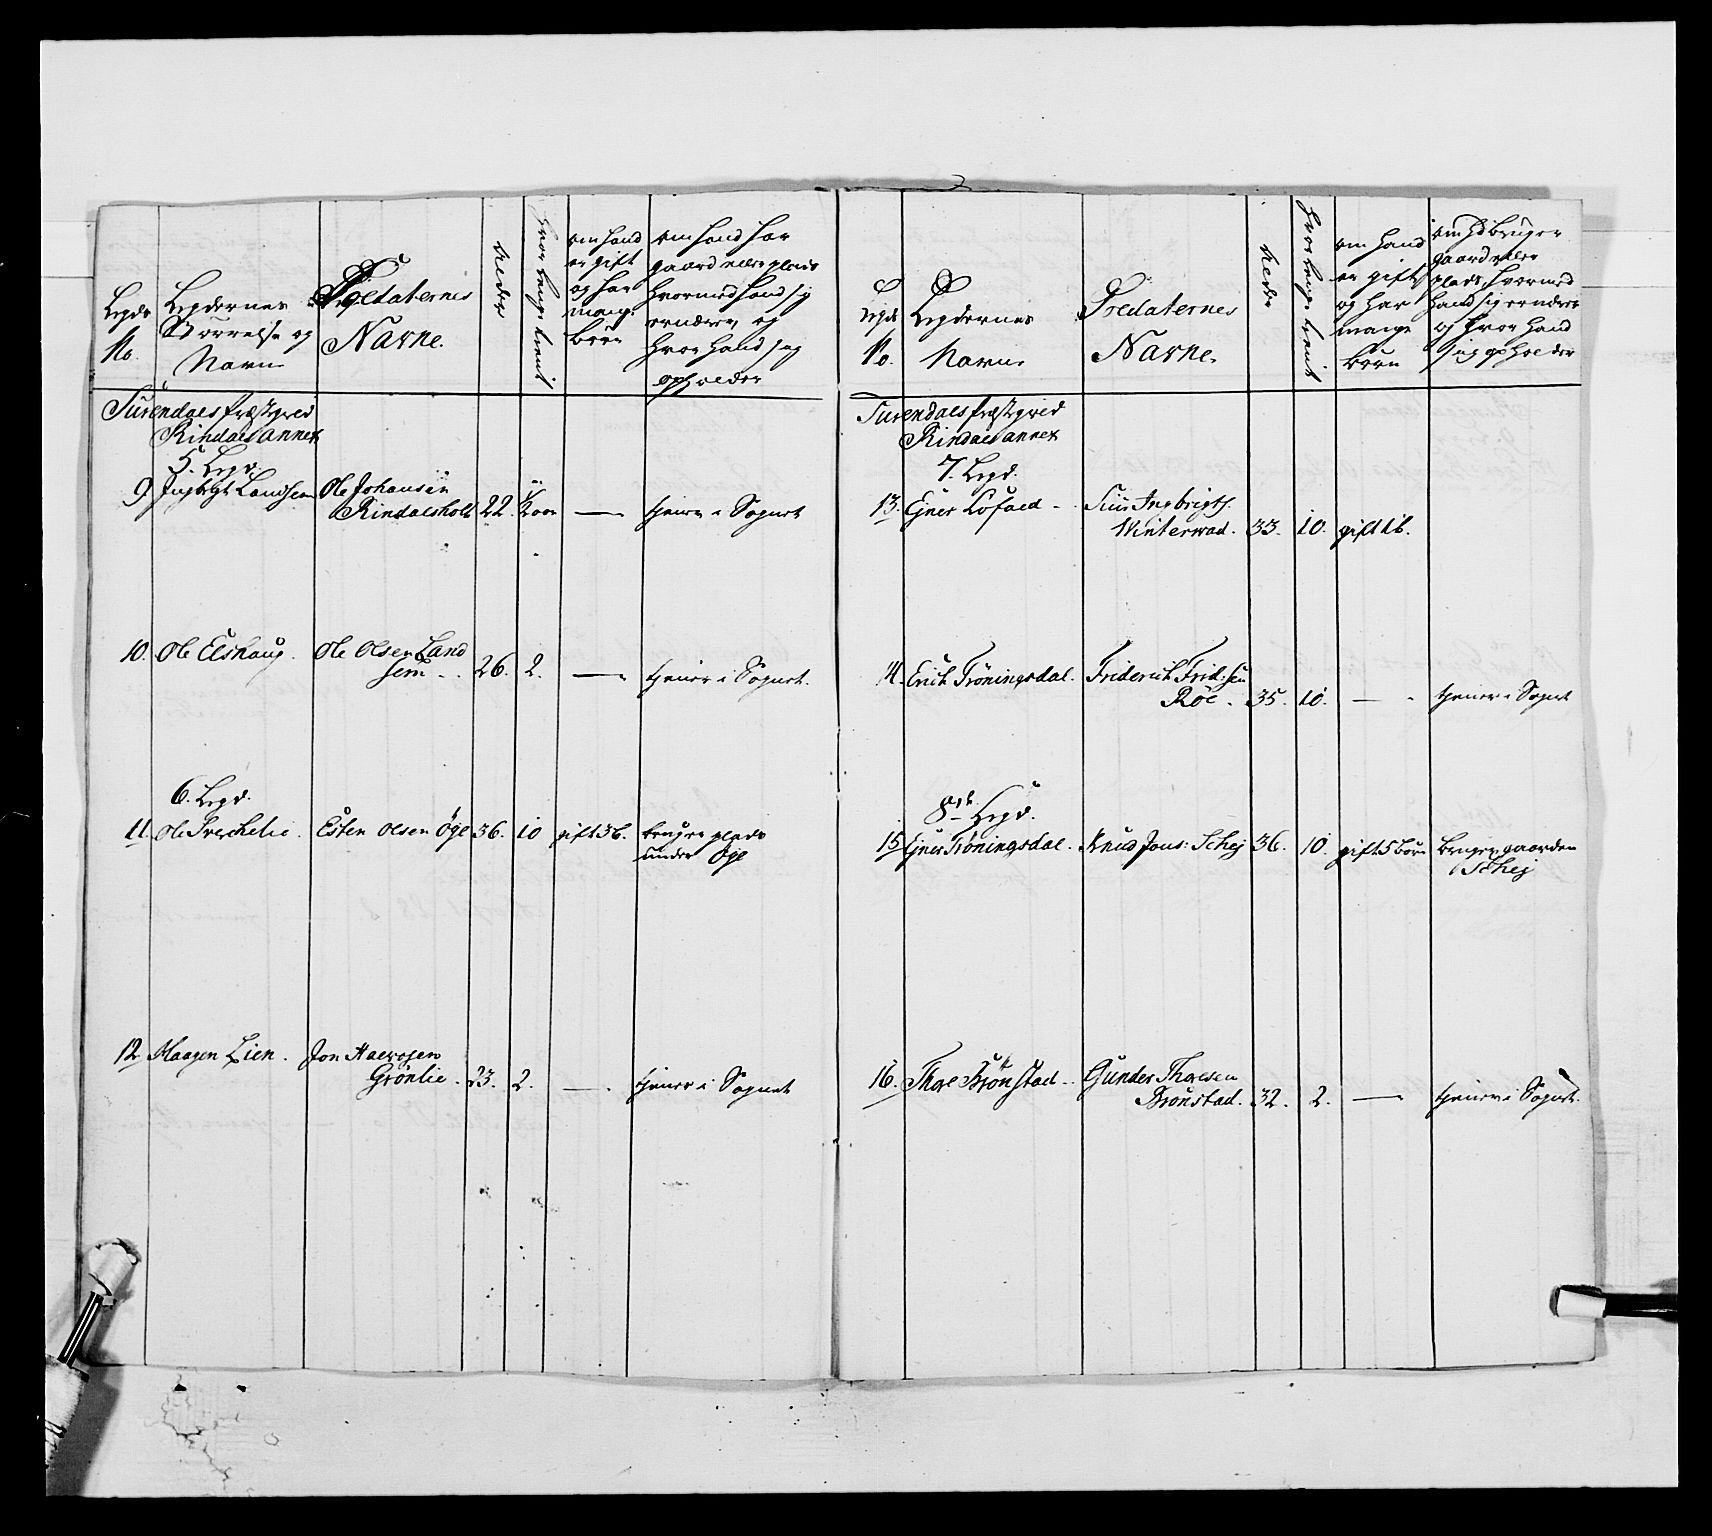 Legds No.
Legdernes Størrelse og Navn
Soldaternes Navne.
Alder
hvor lenge tient
om hand er gift og har mange børn
om hand har gaard eller plads hvormed hand sig ernærer og hvor hand sig opholder
Surendals præstegield
Rindals annex
5. Legd.
9 Ingbrigt Landsem Ole Johansen
Rindalsholt 22. 1/2 aar — tiener i Sognet
10. Ole Elshaug. Ole Olsen Land
sem 26. 2. — tiener i Sognet.
6. Legd.
11. Ole Sverchelie. Esten Olsen Öye 36. 10 gift 3 b. bruger plads
under Öye
12 Haagen Lien. Jon Halvorsen
Grönlie. 23. 2. — tiener i Sognet
Legds No.
Legdernes Navne
Soldaternes Navne.
Alder
hvor lenge tient
om hand er gift og har mange børn
om hd bruger gaard eller plads, hvormed hand sig ernærer og hvor hand sig opholder
Surendals præstegield
Rindals annex
7. Legd.
13. Ejner Lofald Siur Ingbrigts.
Winterwad. 33. 10. gift 1 b.
14. Erich Tröningsdal. Friderich Frid:sen
Röe. 35. 10. — tiener i Sognet
8de Legd.
15 Ejner Tröningsdal. Knud Jons: Schej 36. 10. gift 5 børn bruger gaarden
Schej
16. Thore Brönstad Gunder Thoresen
Bronstad. 32. 2. — tiener i Sognet.